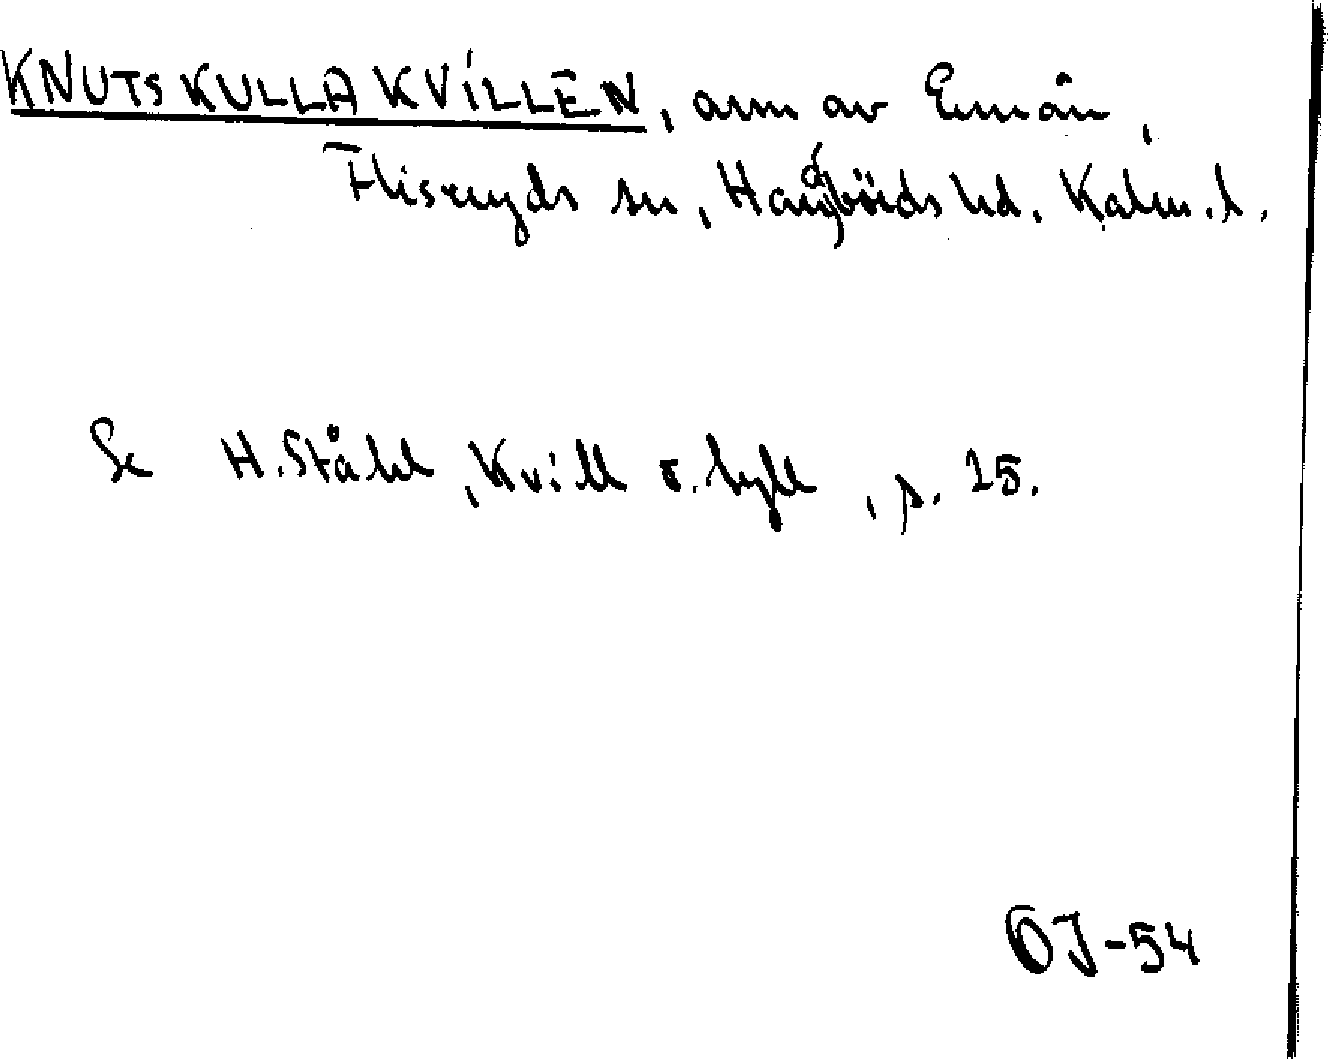 KNUTSKULLAKVILLEN, arm av Emån,
Fliseryds sn, Handbörds hd. Kalm. l.
Se H. Ståhl, Kvill o. hyll, s. 15.
OJ-54